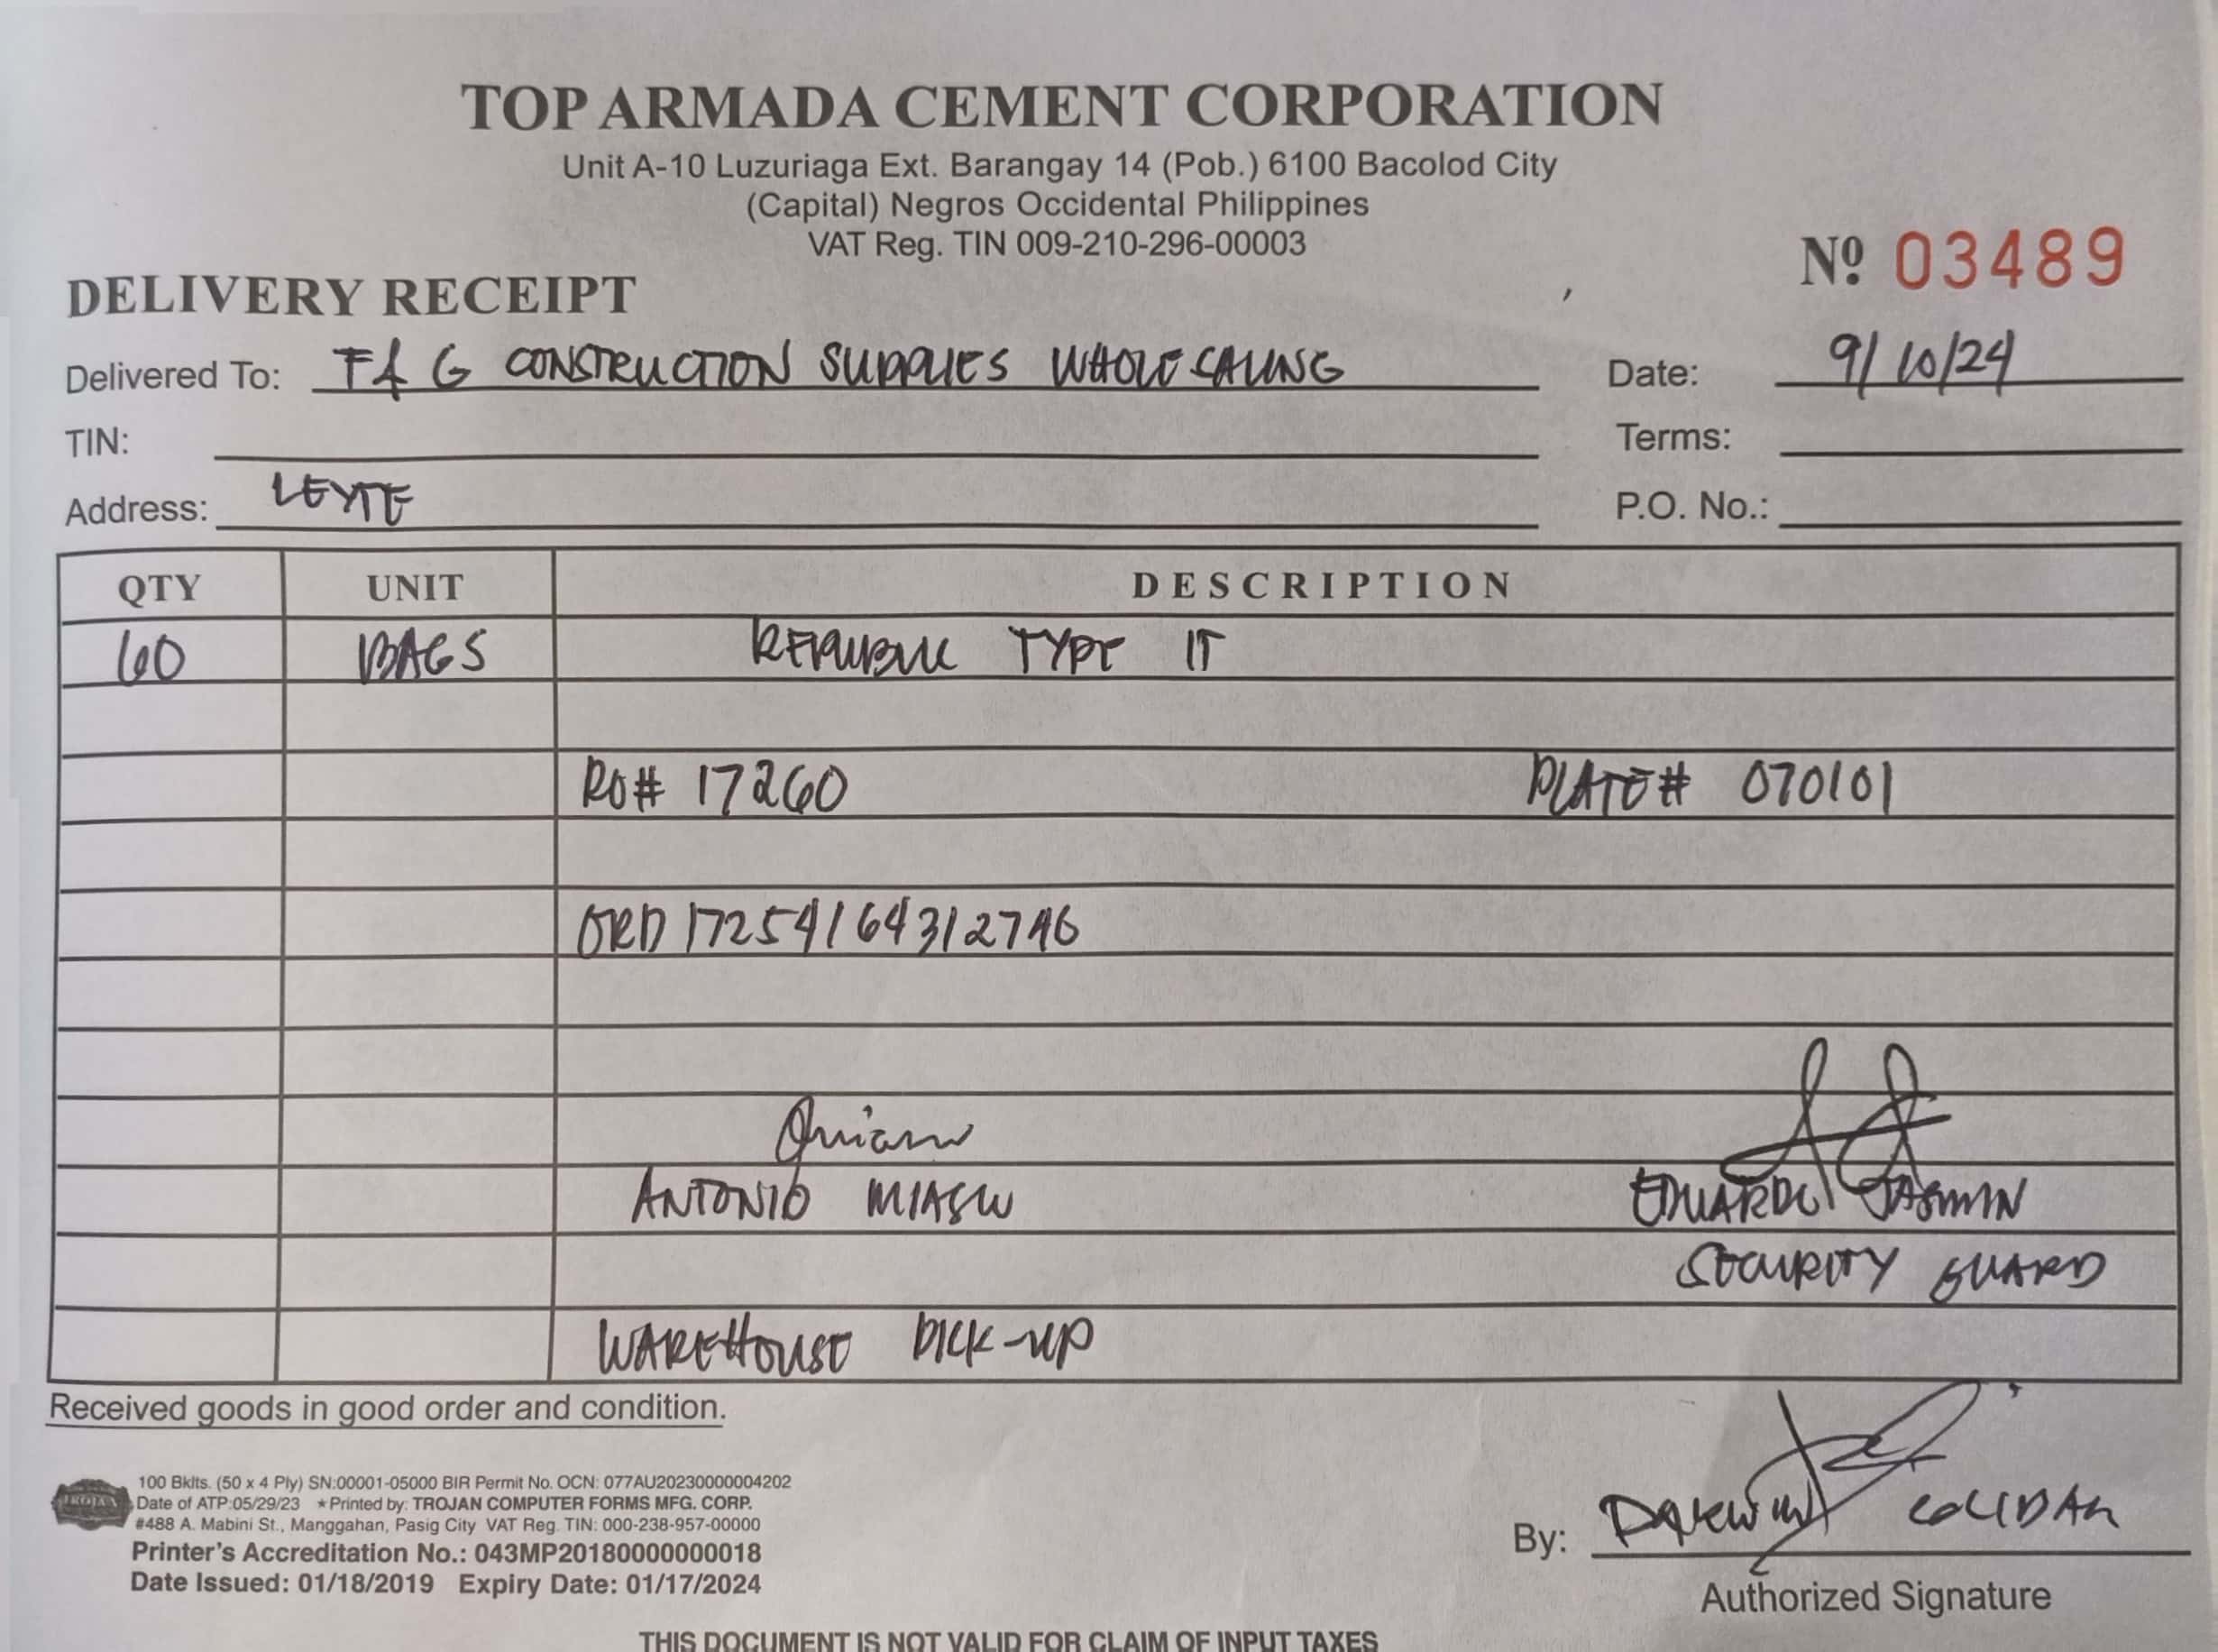 TOP ARMADA CEMENT CORPORATION
Unit A-10 Luzuriaga Ext. Barangay 14 (Pob.) 6100 Bacolod City
(Capital) Negros Occidental Philippines
VAT Reg. TIN 009-210-296-00003
Nº 03489
DELIVERY RECEIPT
Delivered To: F & G CONSTRUCTION SUPPLIES WHOLESALING
Date: 9/10/24
TIN:
Terms:
Address: LEYTE
P.O. No.:
QTY UNIT DESCRIPTION
60 BAGS REPUBLIC TYPE IT
RO# 17260 PLATE# 070101
ORD 1725416431274 6
ANTONIO EDUARDO JASMIN
SECURITY GUARD
WAREHOUSE PICK-UP
Received goods in good order and condition.
TROJAN
100 Bklts. (50 x 4 Ply) SN:00001-05000 BIR Permit No. OCN: 077AU20230000004202
Date of ATP:05/29/23 ★Printed by: TROJAN COMPUTER FORMS MFG. CORP.
#488 A. Mabini St., Manggahan, Pasig City VAT Reg. TIN: 000-238-957-00000
Printer's Accreditation No.: 043MP20180000000018
Date Issued: 01/18/2019 Expiry Date: 01/17/2024
By: DARWIN
Authorized Signature
THIS DOCUMENT IS NOT VALID FOR CLAIM OF INPUT TAXES